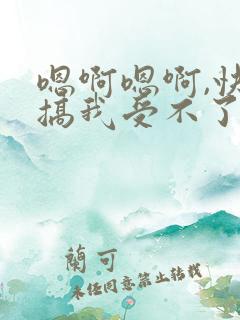 嗯啊嗯啊,快
搞我受不了
蘭可
未经同意禁止转载